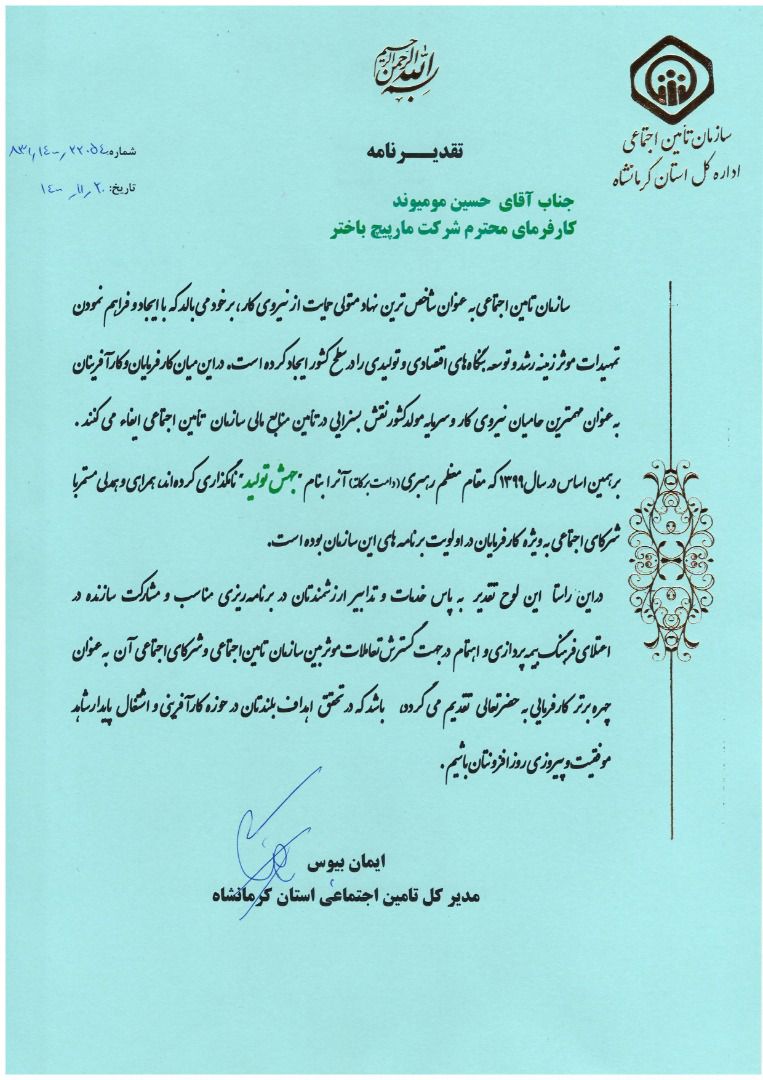 بسم الله الرحمن الرحیم
سازمان تأمین اجتماعی
اداره کل استان کرمانشاه
شماره: ۸۳۱٫۱۴۰۰٫۲۲۰۵۴
تاریخ: ۱۴۰۰٫۱۱٫۲۰
تقدیـــرنامه
جناب آقای حسین مومیوند
کارفرمای محترم شرکت مارپیچ باختر
سازمان تامین اجتماعی به عنوان شاخص ترین نهاد متولی حمایت از نیروی کار، بر خود می بالد که با ایجاد و فراهم نمودن
تمهیدات موثر زمینه رشد و توسعه بنگاه های اقتصادی و تولیدی را در سطح کشور ایجاد کرده است. در این میان کارفرمایان و کارآفرینان
به عنوان مهمترین حامیان نیروی کار و سرمایه مولد کشور نقش بسزایی در تأمین منابع مالی سازمان تأمین اجتماعی ایفاء می کنند .
بر همین اساس در سال ۱۳۹۹ که مقام معظم رهبری (دامت برکاته) آنرا بنام "جهش تولید" نامگذاری کرده اند، همراهی و همدلی مستمر با
شرکای اجتماعی به ویژه کارفرمایان در اولویت برنامه های این سازمان بوده است.
در این راستا این لوح تقدیر به پاس خدمات و تدابیر ارزشمندتان در برنامه ریزی مناسب و مشارکت سازنده در
اعتلای فرهنگ بیمه پردازی و اهتمام در جهت گسترش تعاملات موثر بین سازمان تامین اجتماعی و شرکای اجتماعی آن به عنوان
چهره برتر کارفرمایی به حضرتعالی تقدیم می گردد، باشد که در تحقق اهداف بلندتان در حوزه کارآفرینی و اشتغال پایدار شاهد
موفقیت و پیروزی روز افزونتان باشیم .
ایمان بیوس
مدیر کل تامین اجتماعی استان کرمانشاه